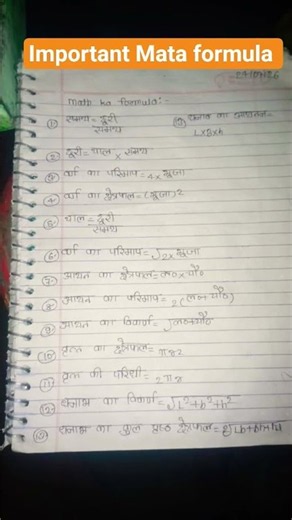 Important Mata formula
math ka formula:-
① समय = दूरी / समय
② दूरी = चाल × समय
③ वर्ग का परिमाप = 4 × भुजा
④ वर्ग का क्षेत्रफल = (भुजा)2
⑤ चाल = दूरी / समय
⑥ वर्ग का परिमाप = √2 × भुजा
⑦ आयत का क्षेत्रफल = ल० × चौ०
⑧ आयत का परिमाप = 2 (ल० + चौ०)
⑨ आयत का विकर्ण = √ल० + चौ०
⑩ वृत्त का क्षेत्रफल = π82
⑪ वृत्त की परिधी = 2π8
⑫ घनाभ का विकर्ण = √l²+b²+h²
⑬ घनाभ का कुल पृष्ठ क्षेत्रफल =
L×B×h